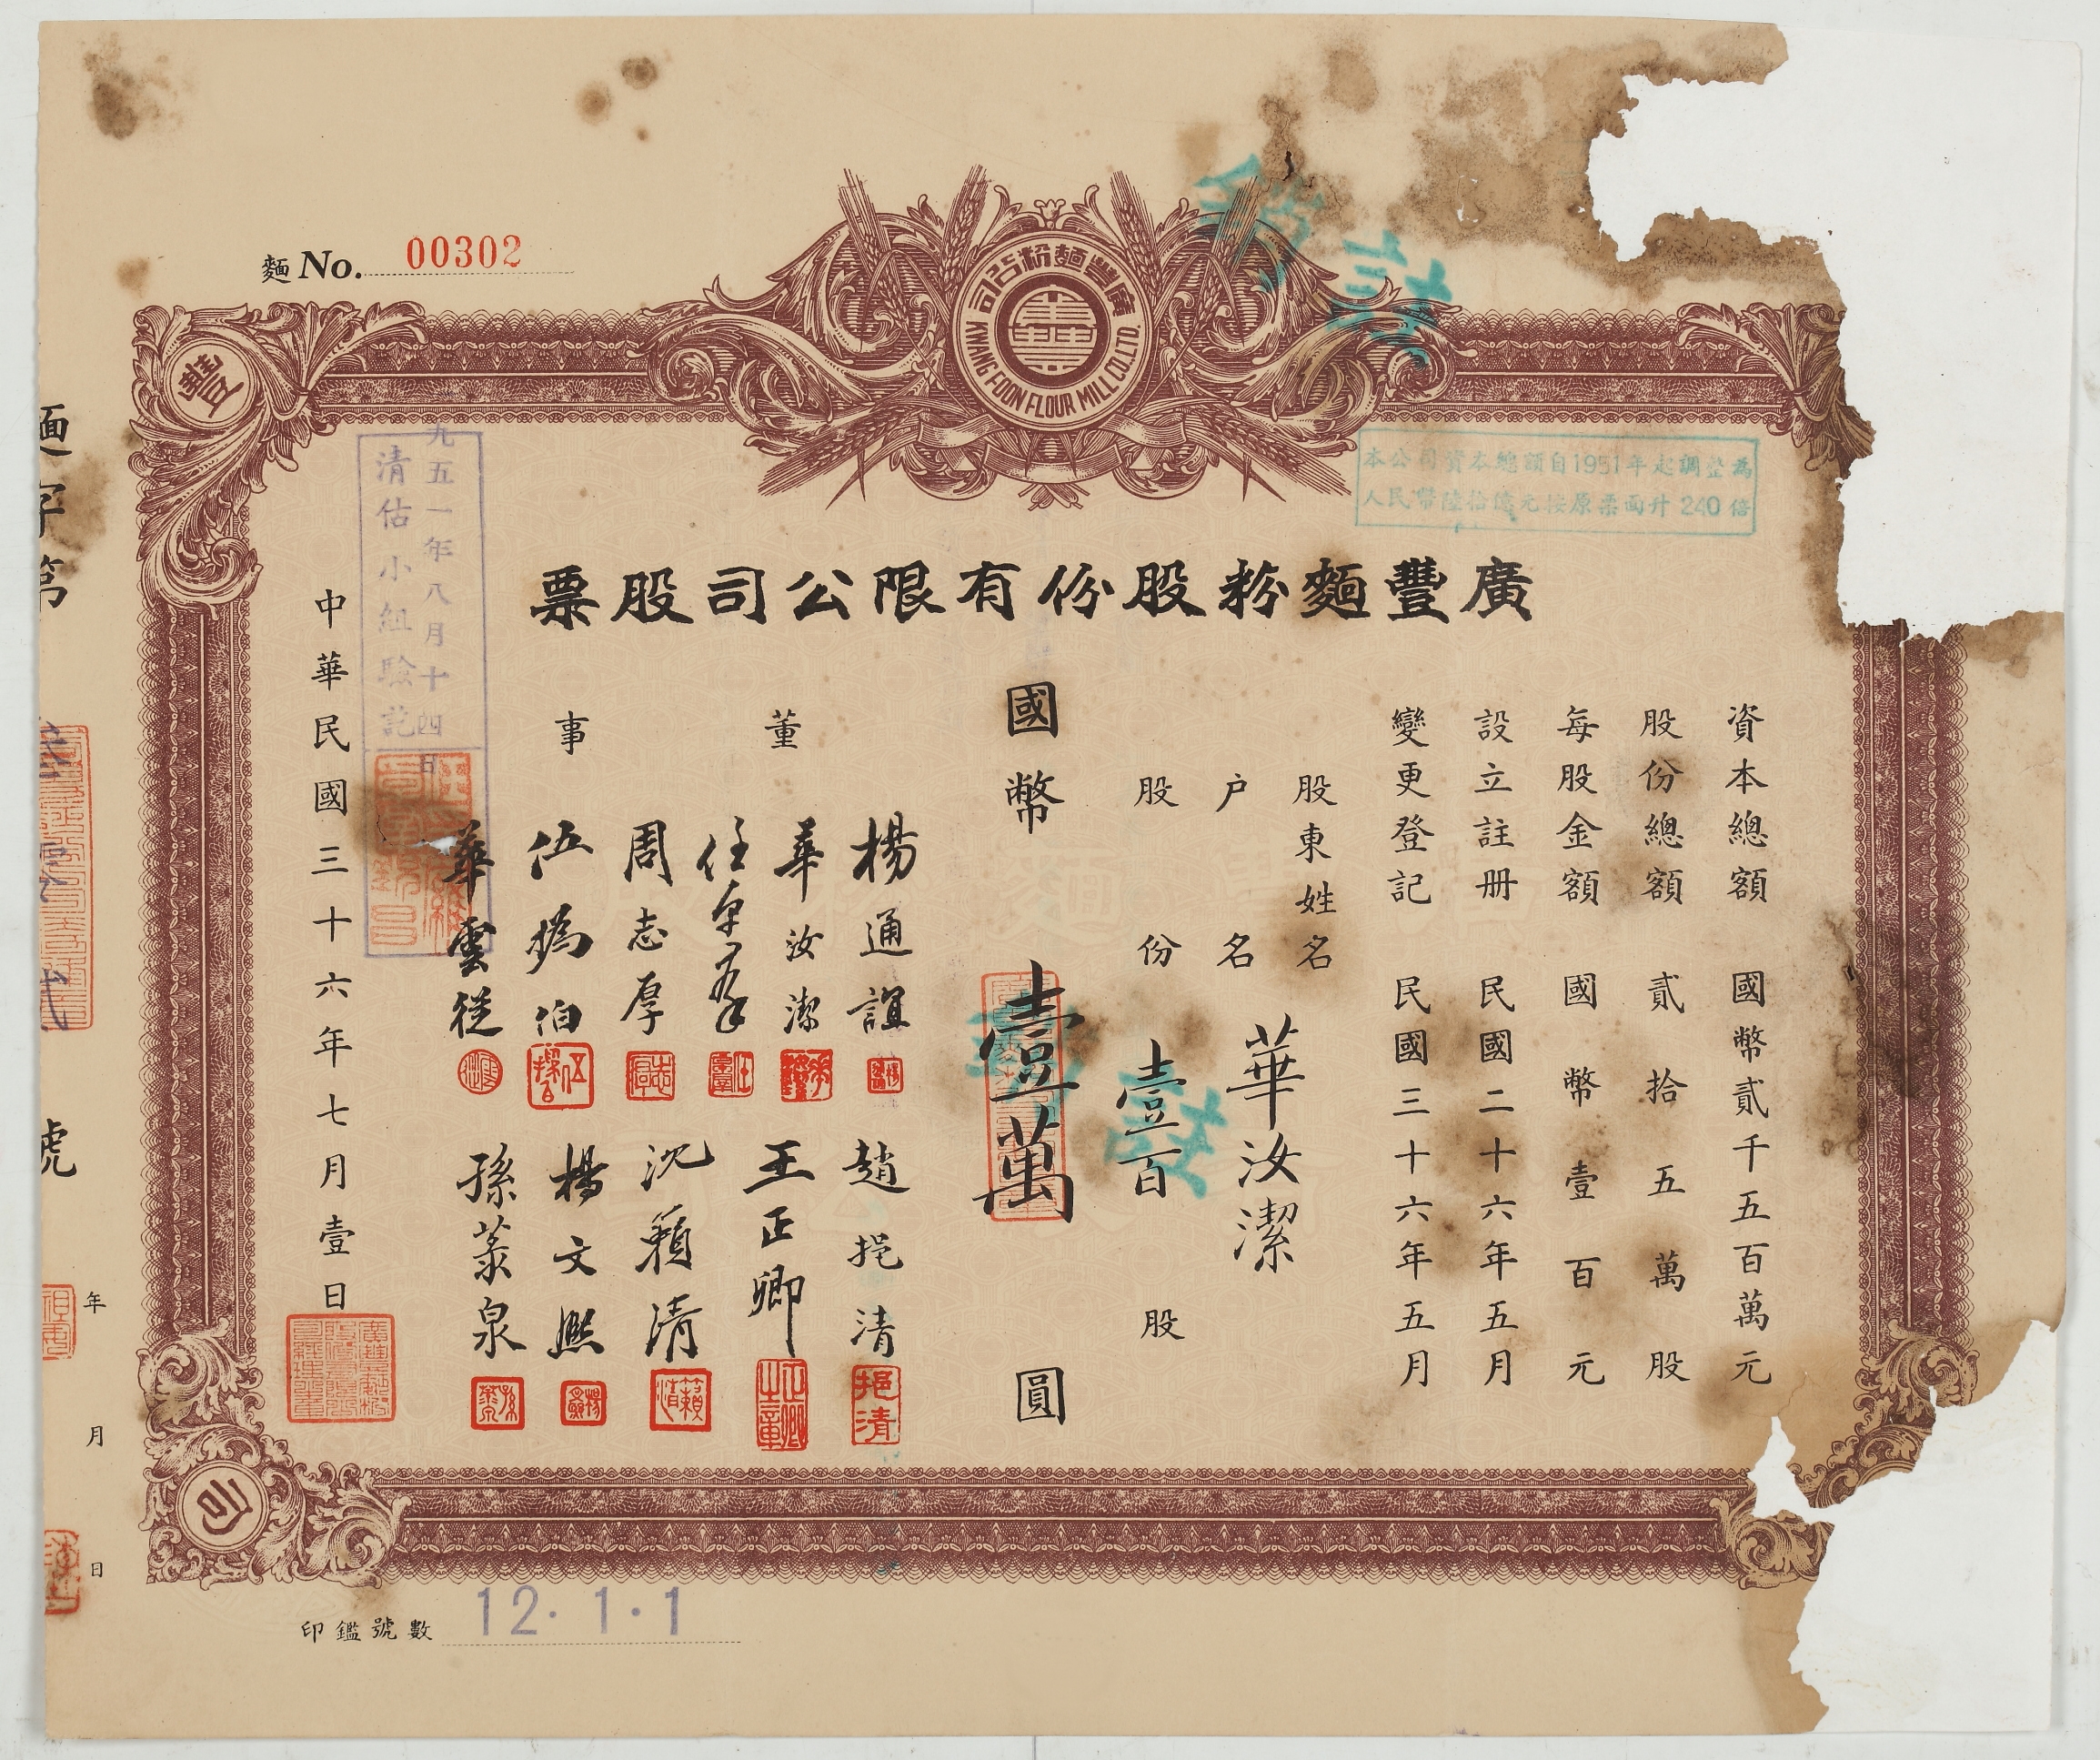 麵 No. 00302
廣豐麵粉公司
KWANG FOON FLOUR MILL CO. LTD.
豐
司
註銷
本公司資本總額自1951年起調整為
人民幣陸拾億元按原票面升240倍
廣豐麵粉股份有限公司股票
資本總額 國幣貳千五百萬元
股份總額 貳拾五萬股
每股金額 國幣壹百元
設立註册 民國二十六年五月
變更登記 民國三十六年五月
股東姓名
户名 華汝潔
股份 壹百股
國幣 壹萬圓
註銷
董事
楊通誼
華汝潔
周志厚
伍撝伯
華雲從
趙挹清
挹清
王正卿
沈籟清
楊文熙
孫蒸泉
一九五一年八月十四日
清估小組驗訖
中華民國三十六年七月壹日
麵字第 號
年 月 日
印鑑號數 12·1·1